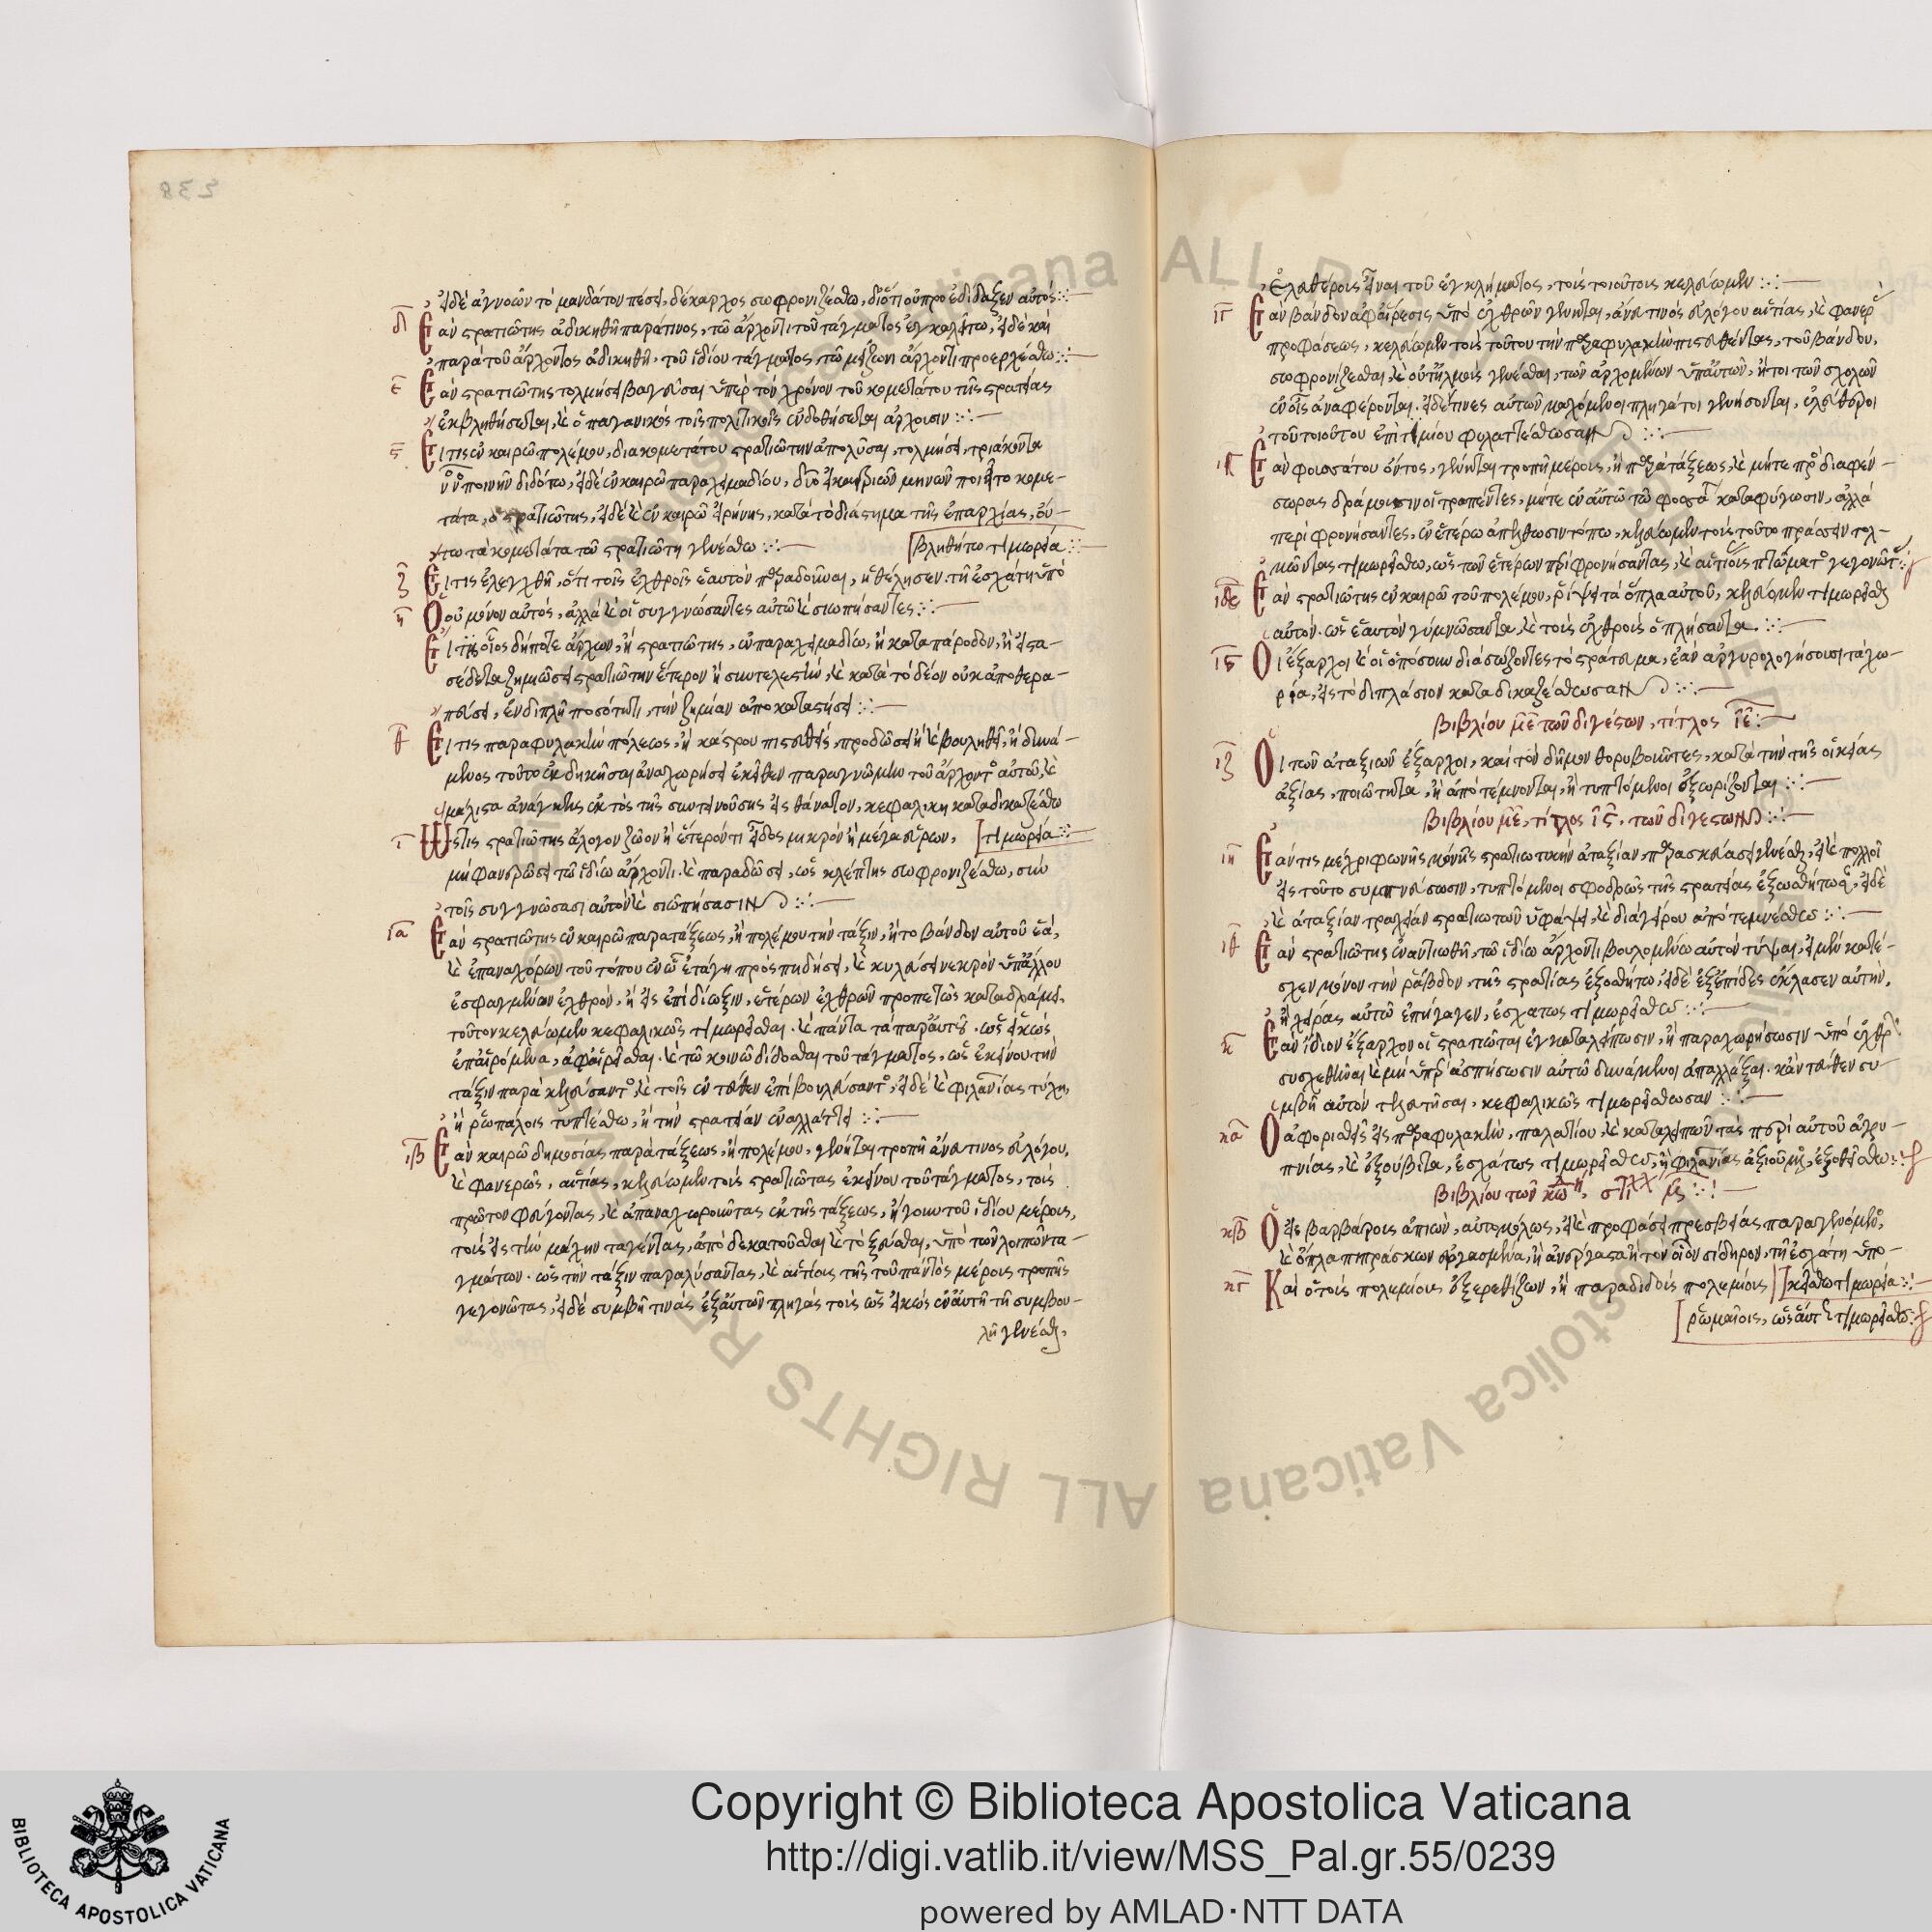 238
εἰ δὲ ἀγνοῶν τὸ μανδάτον πέσει, δέκαρχος σωφρονιζέσθω, διότι οὐ προεδίδαξεν αὐτόν
δ Ἐὰν στρατιώτης ἀδικηθῆ παρά τινος, τῶ ἄρχοντι τοῦ τάγματος ἐγκαλείτω, εἰ δὲ καὶ
παρὰ τοῦ ἄρχοντος ἀδικηθῆ, τοῦ ἰδίου τάγματος, τῶ μείζονι ἄρχοντι προσερχέσθω
ε Ἐὰν στρατιώτης τολμήσει βαγεῦσαι ὑπὲρ τὸν χρόνον τοῦ κομεάτου τῆς στρατείας
ἐκβληθήσεται, καὶ ὁ παγανικὸς τοῖς πολιτικοῖς ἐνδοθήσεται ἄρχουσιν
ς Εἴ τις ἐν καιρῶ πολέμου, διὰ κομετάτου στρατιώτην ἀπολῦσαι, τολμήσει, τριάκοντα
ποινὴν διδότω, εἰ δὲ ἐν καιρῶ παραχειμαδίου, μηνῶν ποιείτω κομε-
τάτα, ὁ στρατιώτης, εἰ δὲ καὶ ἐν καιρῶ εἰρήνης, κατὰ τὸ διάστημα τῆς ἐπαρχίας, οὕ-
τω τὰ κομετάτα τοῦ στρατιώτη γινέσθω [βληθήτω τιμωρία
ζ Εἴ τις ἐλεγχθῆ, ὅτι τοῖς ἐχθροῖς ἑαυτὸν παραδοῦναι, ἠθέλησεν. τῆ ἐσχάτη ὑπὸ
η Οὐ μόνον αὐτός, ἀλλὰ καὶ οἱ συγγνώσαντες αὐτῶ καὶ σιωπήσαντες
Εἴ τις οἷος δήποτε ἄρχων, ἢ στρατιώτης, ἐν παραχειμαδίω, ἢ κατὰ πάροδον, ἢ εἰς τα-
ζημιώσει στρατιώτην ἕτερον ἢ συντελεστήν, καὶ κατὰ τὸ δέον οὐκ ἀποθερα-
πεύσει, ἐν διπλῆ ποσότητι, τὴν ζημίαν ἀποκαταστήσει
θ Εἴ τις παραφυλακὴν πόλεως, ἢ κάστρου πιστευθείς, προδώσει ἢ καὶ βουληθεῖ, ἢ δυνά-
μενος τοῦτο ἐκδικῆσαι ἀναχωρήσει ἐκεῖθεν παρὰ γνώμην τοῦ ἄρχοντος αὐτοῦ, καὶ
μάλιστα ἀνάγκης ἐκτὸς τῆς συντεινούσης εἰς θάνατον, κεφαλικῆ καταδικαζέσθω
ι στρατιώτης ἄλογον ζῶον ἢ ἕτερόν τι εἶδος μικρὸν ἢ μέγα εὑρών, [τιμωρία
μὴ φανερώσει τῶ ἰδίω ἄρχοντι. καὶ παραδώσει, ὡς κλέπτης σωφρονιζέσθω, σὺν
τοῖς συγγνώσασι αὐτὸν καὶ σιωπήσασιν
ια Ἐὰν στρατιώτης ἐν καιρῶ παρατάξεως, ἢ πολέμου τὴν τάξιν, ἢ τὸ βάνδον αὐτοῦ ἐᾶ,
καὶ ἐπαναχωρῶν τοῦ τόπου ἐν ὧ ἐτάγη προσπηδήσει, καὶ κυλεύσει νεκρὸν ὑπ' ἄλλου
ἐσφαγμένον ἐχθρόν, ἢ εἰς ἐπιδίωξιν, ἑτέρων ἐχθρῶν προπετῶς καταδράμει.
τοῦτον κελεύωμεν κεφαλικῶς τιμωρεῖσθαι. καὶ πάντα τὰ παρ' αὐτοῦ. ὡς εἰκὼς
ἐπαιρόμενα, ἀφαιρεῖσθαι. καὶ τῶ κοινῶ δίδοσθαι τοῦ τάγματος, ὡς ἐκείνου τὴν
τάξιν παρακελεύσαντος καὶ τοῖς ἐντεῦθεν ἐπιβουλεύσαντος, εἰ δὲ καὶ τύχη,
ἢ ῥωπάλοις τυπτέσθω, ἢ τὴν στρατείαν ἐναλλάττει
ιβ Ἐὰν καιρῶ δημοσίας παρατάξεως, ἢ πολέμου, γένηται τροπὴ ἄνευ τινος εὐλόγου,
καὶ φανερῶς, αἰτίας, κελεύωμεν τοὺς στρατιώτας ἐκείνου τοῦ τάγματος, τοὺς
πρῶτον φεύγοντας, καὶ ἐπαναχωροῦντας ἐκ τῆς τάξεως, ἤγουν τοῦ ἰδίου μέρους,
τοὺς εἰς τὴν μάχην ταγέντας, ἀποδεκατοῦσθαι καὶ τοξεύεσθαι, ὑπὸ τῶν λοιπῶν τα-
γμάτων. ὡς τὴν τάξιν παραλύσαντας, καὶ αἰτίους τῆς τοῦ παντὸς μέρους τροπῆς
γεγονότας, εἰ δὲ συμβῆ τινὰς ἐξ αὐτῶν πληγὰς τοὺς ὡς εἰκὼς ἐν αὐτῆ τῆ συμβου-
λῆ γενέσθαι,
ἐλευθέρους εἶναι τοῦ ἐγκλήματος, τοὺς τοιούτους κελεύωμεν
ιγ Ἐὰν βάνδου ἀφαίρεσις ὑπὸ ἐχθρῶν γένηται, ἄνευ τινὸς εὐλόγου αἰτίας, καὶ φανερᾶς
προφάσεως, κελεύωμεν τοὺς τούτου τὴν παραφυλακὴν πιστευθέντας, τοῦ βάνδου,
σωφρονίζεσθαι, καὶ γενέσθαι, τῶν ἀρχομένων ὑπ' αὐτῶν, ἤτοι τῶν σχολῶν
ἐν αἷς ἀναφέρονται. εἰ δέ τινες αὐτῶν μαχόμενοι πληγάτοι γενήσονται, ἐλεύθεροι
τοῦ τοιούτου ἐπιτιμίου φυλαττέσθωσαν
ιδ Ἐὰν φοσσάτου ὄντος, γένηται τροπὴ μέρους, ἢ παρατάξεως, καὶ μήτε πρὸς διαφέν-
σωρας δράμουσιν οἱ τραπέντες, μήτε ἐν αὐτῶ τῶ φοσσάτω καταφύγωσιν, ἀλλὰ
περιφρονήσαντες, ἐν ἑτέρω ἀπέλθωσιν τόπω, κελεύωμεν τοὺς τοῦτο πράσσειν τολ-
μῶντας τιμωρεῖσθω, ὡς τῶν ἑτέρων περιφρονήσαντας, καὶ αἰτίους πτώματος γεγονότας
ιε Ἐὰν στρατιώτης ἐν καιρῶ τοῦ πολέμου, ῥίψει τὰ ὅπλα αὐτοῦ, κελεύομεν τιμωρεῖσθαι
αὐτόν. ὡς ἑαυτὸν γύμνώσαντα, καὶ τοὺς ἐχθροὺς ὁπλήσαντα
ις Οἱ ἔξαρχοι καὶ οἱ ὁπόσουν διασώζοντες τὸ στράτευμα, ἐὰν ἀργυρολογήσουσι τὰ χω-
ρία, εἰς τὸ διπλάσιον καταδικαζέσθωσαν
βιβλίου μ̅ε̅ τῶν διγέστων, τίτλος ι̅ε̅
ιζ Οἱ τῶν ἀταξιῶν ἔξαρχοι, καὶ τὸν δῆμον θορυβοῦντες, κατὰ τὴν τῆς οἰκείας
ἀξίας, ποιότητα, ἢ ἀποτέμνονται, ἢ τυπτόμενοι ἐξωρίζονται
βιβλίου μ̅ε̅, τίτλος ι̅ς̅. τῶν διγέστων
ιη Ἐάν τις μέχρι φωνῆς μόνης στρατιωτικὴν ἀταξίαν παρασκευάσει γενέσθαι, εἰ καὶ πολλοὶ
εἰς τοῦτο συμπνεύσωσιν, τυπτόμενοι σφοδρῶς τῆς στρατείας ἐξωθήτωσαν, εἰ δὲ
καὶ ἀταξίαν τραχεῖαν στρατιωτῶν ὑφάψει, καὶ διάγείρου ἀποτεμνέσθω
ιθ Ἐὰν στρατιώτης ἐναντιωθῆ, τῶ ἰδίω ἄρχοντι βουλομένω αὐτὸν τύψαι, εἰ μὲν κατέ-
σχεν μόνον τὴν ῥάβδον, τῆς στρατίας ἐξωθήτω, εἰ δὲ ἐξεπίτηδες ἔκλασεν αὐτήν,
ἢ χεῖρας αὐτῶ ἐπήγαγεν, ἐσχάτως τιμωρεῖσθω
κ Ἐὰν ἴδιον ἔξαρχον οἱ στρατιῶται ἐγκαταλείπωσιν, ἢ παραχωρήσωσιν ὑπὸ ἐχθρῶν
συσχεθῆναι καὶ μὴ ὑπερασπήσωσιν αὐτῶ δυνάμενοι ἀπαλλάξαι. κἀντεῦθεν συ-
μβῆ αὐτὸν τελευτῆσαι, κεφαλικῶς τιμωρείσθωσαν
κα Ὁ ἀφορισθεὶς εἰς παραφυλακήν, παλατίου, καὶ καταλειπὼν τὰς περὶ αὐτοῦ ἀγρυ-
πνίας, καὶ ἐξούβιτα, ἐσχάτως τιμωρεῖσθω, ἢ φιλανίας ἀξιούμενος, ἐξοθείσθω
βιβλίου τῶν
κβ Ὁ εἰς βαρβάρους ἀπιών, αὐτομόλως, εἰ καὶ προφάσει πρεσβείας παραγενόμενος,
καὶ ὅπλα πιπράσκων εἰργασμένα, ἢ ἀνέργαστα ἢ τὸν οἷον σίδηρον, τῆ ἐσχάτη ὑπο-
κγ Καὶ ὁ τοὺς πολεμίους ἐξερεθίζων, ἢ παραδιδοὺς πολεμίοις [κείσθω τιμωρία
[ῥωμαίους, ὡσαύτως τιμωρεῖσθω
Copyright © Biblioteca Apostolica Vaticana
http://digi.vatlib.it/view/MSS_Pal.gr.55/0239
powered by AMLAD·NTT DATA
BIBLIOTECA APOSTOLICA VATICANA